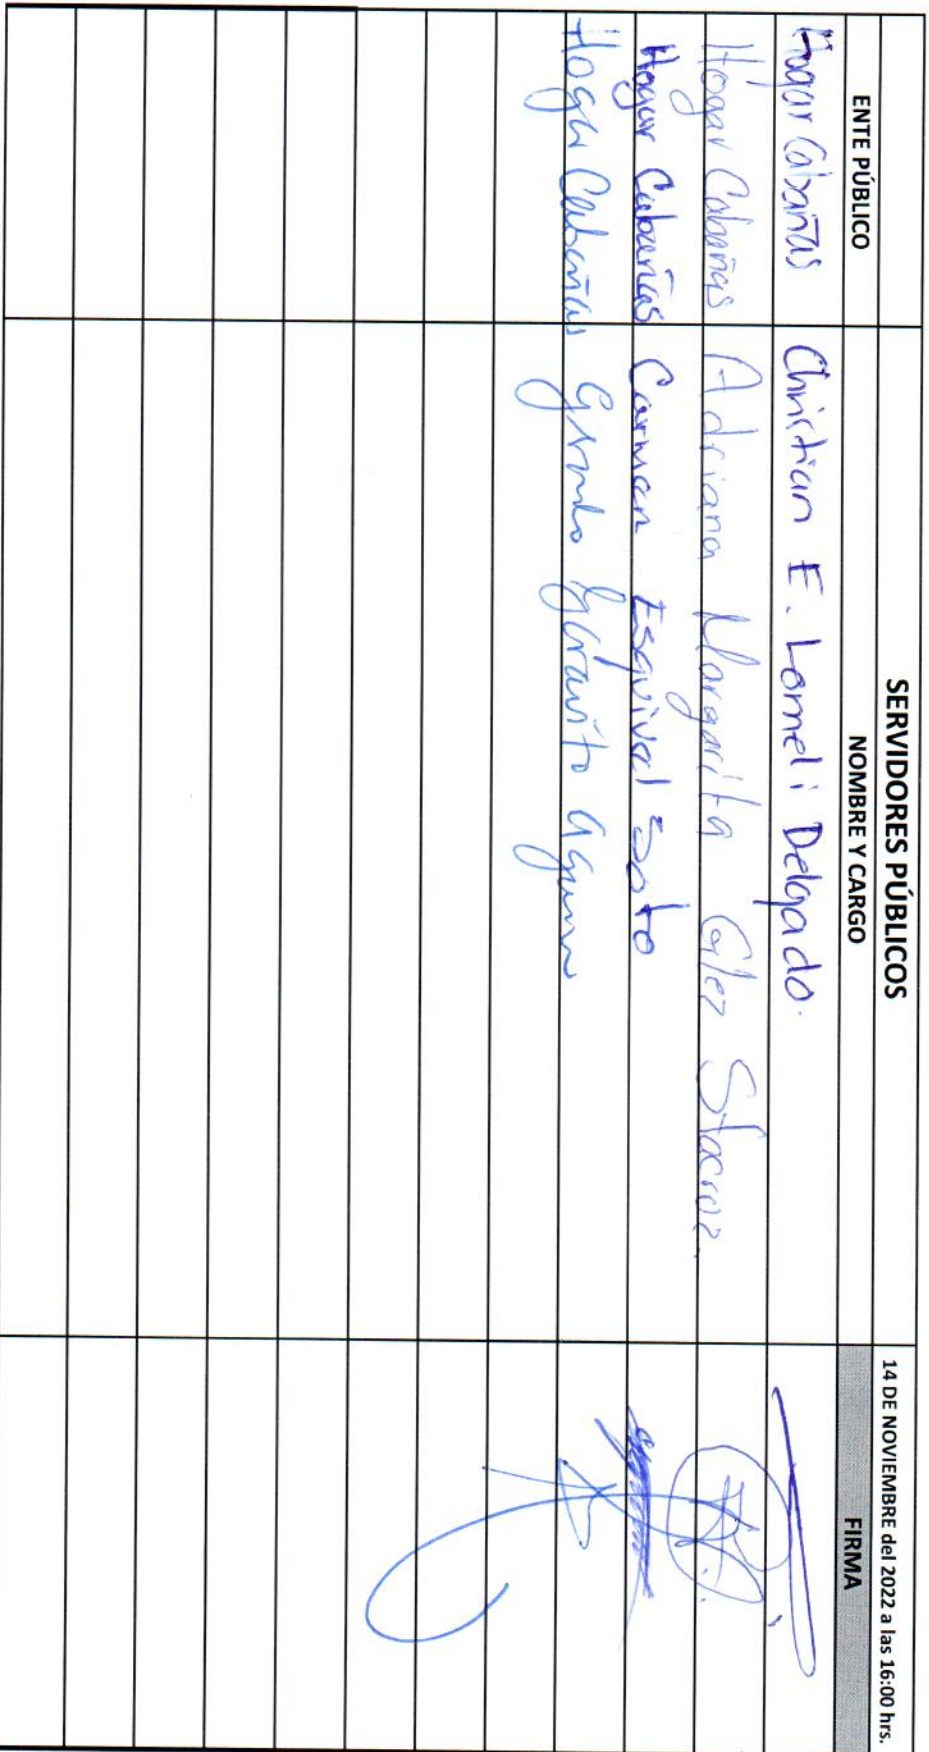 SERVIDORES PÚBLICOS 14 DE NOVIEMBRE del 2022 a las 16:00 hrs.
ENTE PÚBLICO NOMBRE Y CARGO FIRMA
Hogar Cabañas Christian E. Lomeli Delgado.
Hogar Cabañas Adriana Margarita Glez Stacruz.
Hogar Cabañas Carmen Esquivel Soto
Hogar Cabañas Gerardo